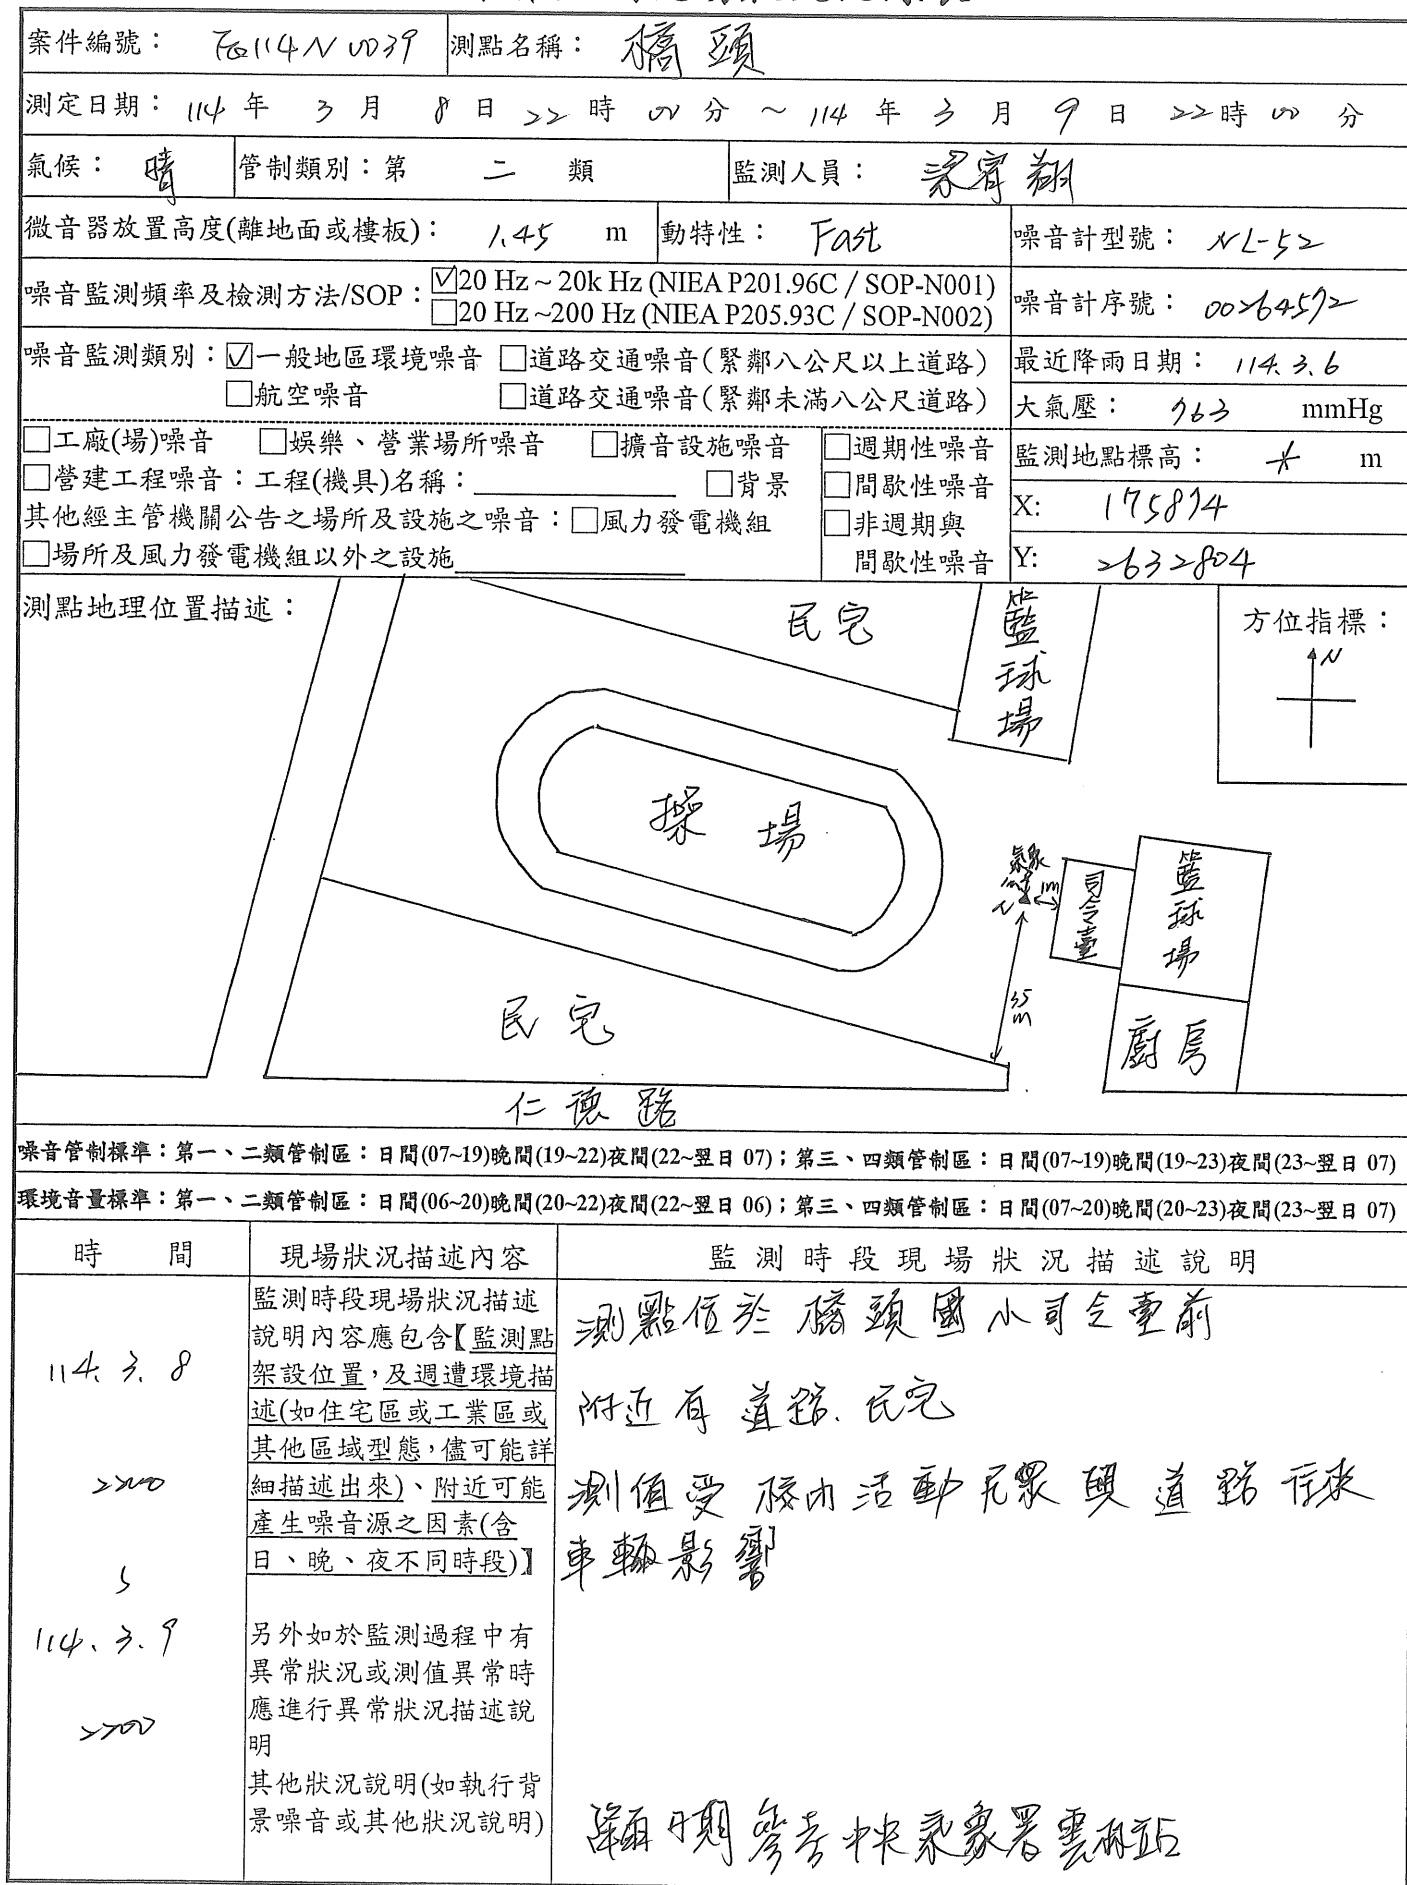 案件編號： FQ114N0039 測點名稱： 橋頭
測定日期： 114 年 3 月 8 日 22 時 00 分 ～ 114 年 3 月 9 日 22 時 00 分
氣候： 晴 管制類別：第 二 類 監測人員： 梁育翔
微音器放置高度(離地面或樓板)： 1.45 m 動特性： Fast 噪音計型號： NL-52
噪音監測頻率及檢測方法/SOP：☑20 Hz ~ 20k Hz (NIEA P201.96C / SOP-N001)
□20 Hz ~200 Hz (NIEA P205.93C / SOP-N002)
噪音計序號： 00264592
噪音監測類別：☑一般地區環境噪音 □道路交通噪音(緊鄰八公尺以上道路)
□航空噪音 □道路交通噪音(緊鄰未滿八公尺道路)
最近降雨日期： 114.3.6
大氣壓： 763 mmHg
□工廠(場)噪音 □娛樂、營業場所噪音 □擴音設施噪音
□營建工程噪音：工程(機具)名稱： □背景
其他經主管機關公告之場所及設施之噪音：□風力發電機組
□場所及風力發電機組以外之設施
□週期性噪音
□間歇性噪音
□非週期與
間歇性噪音
監測地點標高： m
X: 175874
Y: 2632804
測點地理位置描述：
民宅
籃球場
方位指標：
N
操場
氣象
1m
N
1m
司令臺
籃球場
35m
民宅
廚房
仁德路
噪音管制標準：第一、二類管制區：日間(07~19)晚間(19~22)夜間(22~翌日 07)；第三、四類管制區：日間(07~19)晚間(19~23)夜間(23~翌日 07)
環境音量標準：第一、二類管制區：日間(06~20)晚間(20~22)夜間(22~翌日 06)；第三、四類管制區：日間(07~20)晚間(20~23)夜間(23~翌日 07)
時 間 現場狀況描述內容 監測時段現場狀況描述說明
114.3.8
2200
114.3.9
2200
監測時段現場狀況描述
說明內容應包含【監測點
架設位置，及週遭環境描
述(如住宅區或工業區或
其他區域型態，儘可能詳
細描述出來)、附近可能
產生噪音源之因素(含
日、晚、夜不同時段)】
另外如於監測過程中有
異常狀況或測值異常時
應進行異常狀況描述說
明
其他狀況說明(如執行背
景噪音或其他狀況說明)
測點位於 橋頭國小司令臺前
附近有道路、民宅
測值受校內活動民眾與道路往來
車輛影響
降雨日期參考中央氣象署雲林站